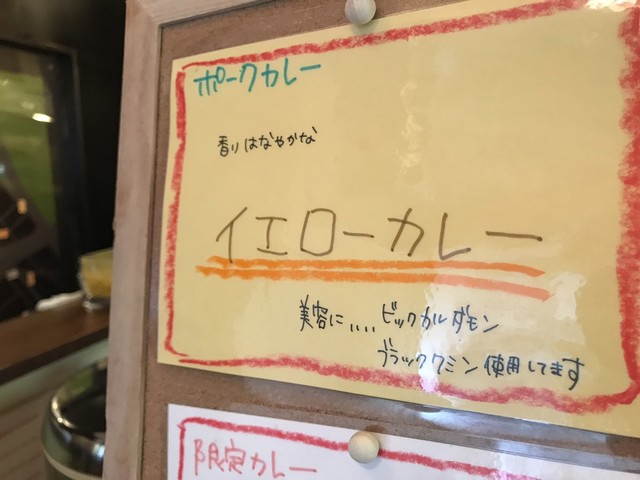 ポークカレー
香りはなやかな
イエローカレー
美容に....ビックカルダモン
ブラッククミン使用してます
限定カレー